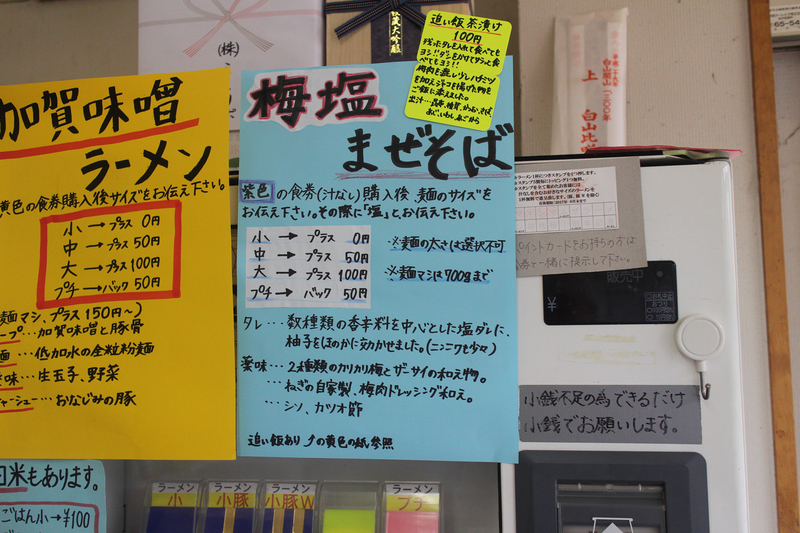 (株)
加賀味噌
ラーメン
黄色の食券購入後サイズをお伝え下さい。
小→プラス 0円
中→プラス 50円
大→プラス 100円
プチ→バック 50円
麺マシ、プラス150円〜)
ープ…加賀味噌と豚骨
麺…低加水の全粒粉麺
味…生玉子、野菜
ャーシュー…おなじみの豚
米もあります。
ごはん小→¥100
梅塩
まぜそば
紫色の食券(汁なし)購入後、麺のサイズを
お伝え下さい。その際に「塩」とお伝え下さい。
小→プラス 0円
中→プラス 50円
大→プラス 100円
プチ→バック 50円
※麺の太さは選択不可
※麺マシは900gまで
タレ…数種類の香辛料を中心とした塩ダレに、
柚子をほのかに効かせました。(ニンニクも少々)
薬味…2種類のカリカリ梅とザーサイの和え物。
…ねぎの自家製、梅肉ドレッシング和え。
…シソ、カツオ節
追い飯あり⤴の黄色の紙参照
追い飯 茶漬け
100円
残ったタレを入れて食べても
ヨシ!!ダシをかけてサラッと食
べてもヨシ!!
ご飯に添えました。
大吟醸
上
白山比咩
イントカードをお持ちの方は
券と一緒に提示して下さい。
販売中
¥
小銭不足の為できるだけ
小銭でお願いします。
ラーメン
小
ラーメン
小豚
ラーメン
小豚W
ラーメン
プチ
65-54